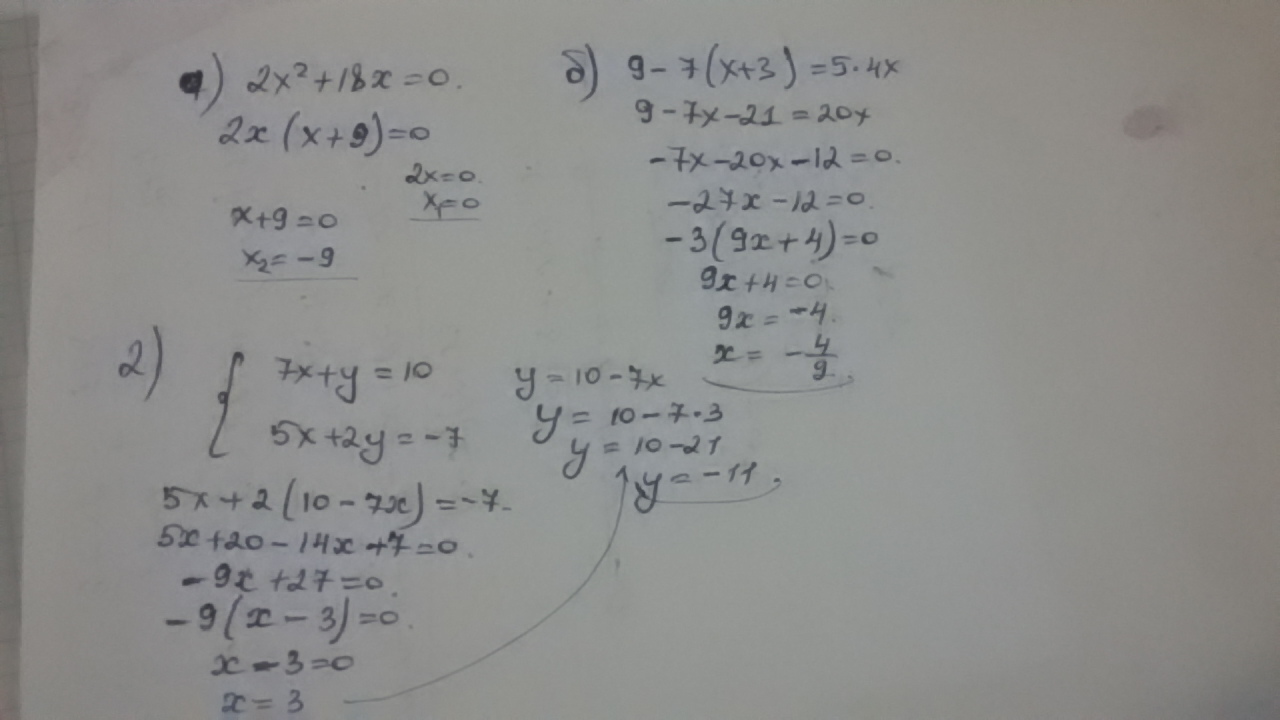 а) 2x² + 18x = 0.
2x (x + 9) = 0
2x = 0.
x₁ = 0
x + 9 = 0
x₂ = -9
б) 9 - 7(x+3) = 5·4x
9 - 7x - 21 = 20x
-7x - 20x - 12 = 0.
-27x - 12 = 0.
-3(9x + 4) = 0
9x + 4 = 0.
9x = -4.
x = -4/9.
2) { 7x + y = 10
5x + 2y = -7
5x + 2(10 - 7x) = -7.
5x + 20 - 14x + 7 = 0.
-9x + 27 = 0.
-9(x - 3) = 0.
x - 3 = 0
x = 3
y = 10 - 7x
y = 10 - 7·3
y = 10 - 21
y = -11.